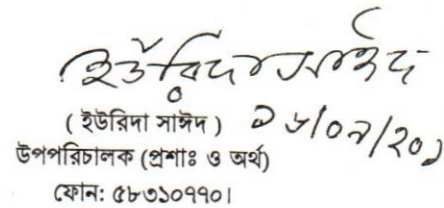 ইউরিদা সাঈদ
( ইউরিদা সাঈদ )
উপপরিচালক (প্রশাঃ ও অর্থ)
ফোন: ৫৮৩১০৭৭০।